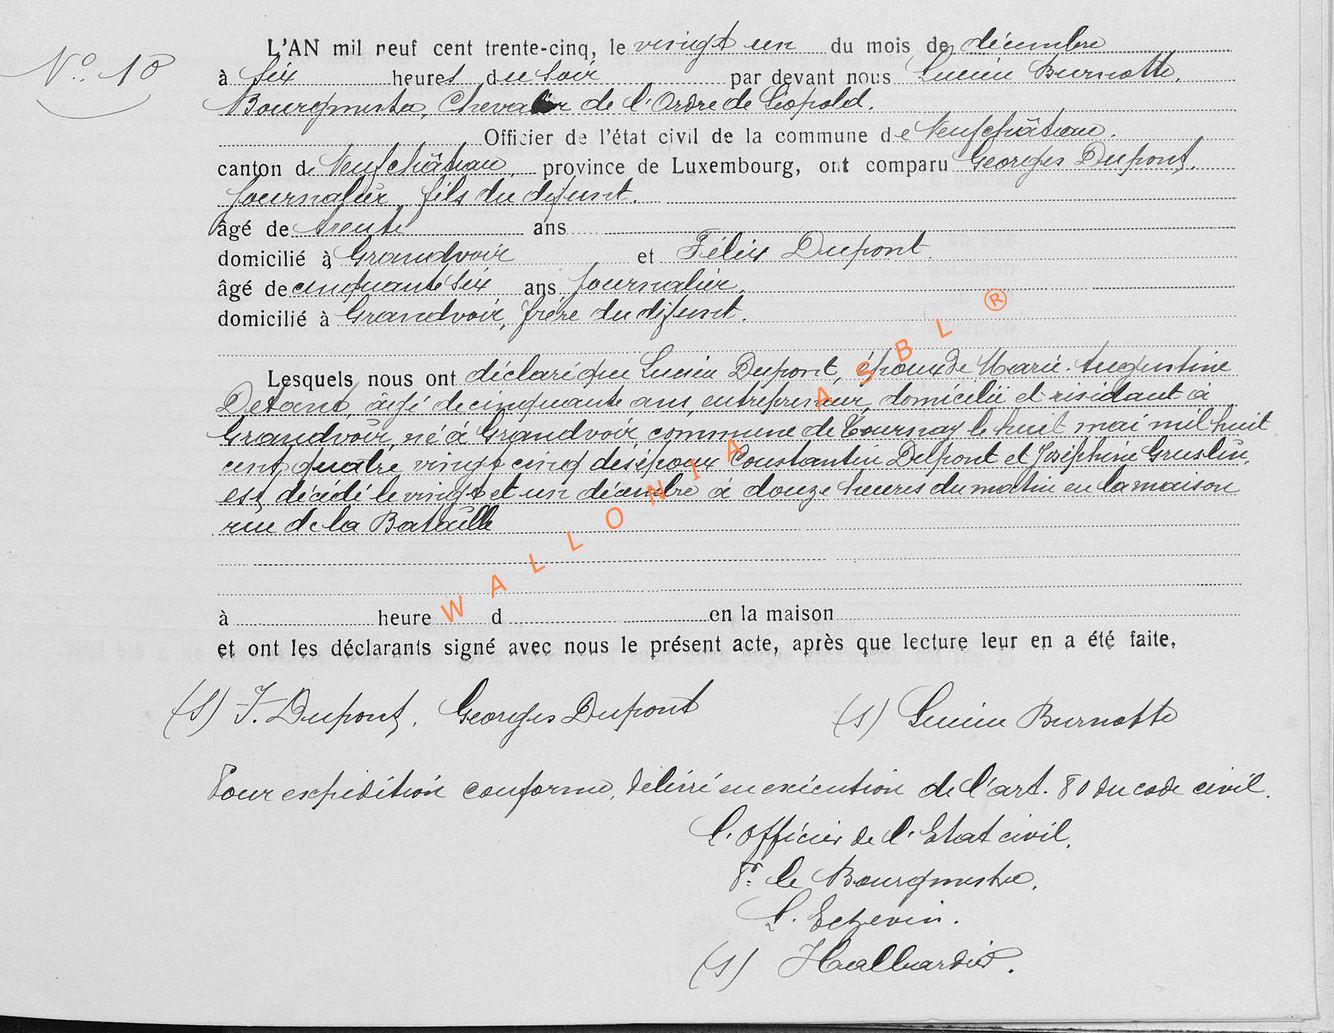 N° 10
L'AN mil neuf cent trente-cinq, le vingt un du mois de décembre
à six heures du soir par devant nous Lucien Burnotte,
Bourgmestre, Chevalier de l'Ordre de Léopold.
Officier de l'état civil de la commune de Neufchâteau.
canton de Neufchâteau, province de Luxembourg, ont comparu Georges Dupont,
journalier, fils du défunt.
âgé de trente ans
domicilié à Grandvoir et Félix Dupont.
âgé de cinquante six ans, journalier,
domicilié à Grandvoir, frère du défunt.
Lesquels nous ont déclaré que Lucien Dupont, époux de Marie Augustine
âgé de cinquante ans, entrepreneur, domicilié et résidant à
Grandvoir, né à Grandvoir, commune de Tournay le huit mai mil huit
cent quatre vingt cinq des époux Constantin Dupont et Joséphine Gruslin,
est décédé le vingt et un décembre à douze heures du matin en la maison
rue de la Bataille
à heure d en la maison
et ont les déclarants signé avec nous le présent acte, après que lecture leur en a été faite,
(S) F. Dupont, Georges Dupont (S) Lucien Burnotte
Pour expédition conforme, délivré en exécution de l'art. 80 du code civil.
L'officier de l'Etat civil,
Pr le Bourgmestre,
L'Echevin.
(S)
WALLONIA ASBL ®